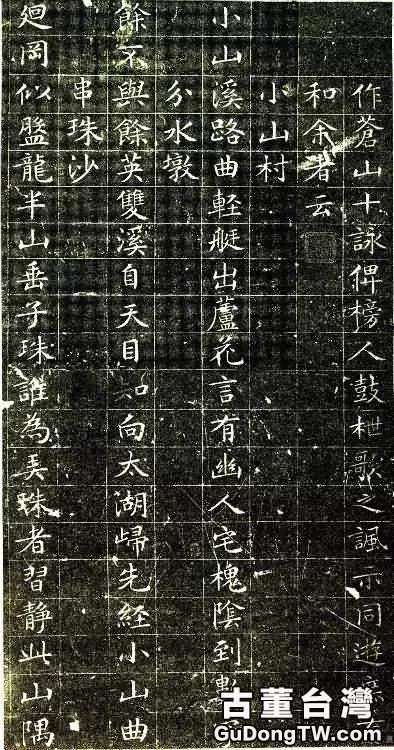 作蒼山十詠俾榜人鼓枻歌之諷示同遊
和余者云
小山村
小山溪路曲軽艇出蘆花言有幽人宅槐陰到
分水墩
餘不與餘英雙溪自天目向太湖歸先經小山曲
串珠沙
廻岡似盤龍半山垂子珠誰為弄珠者習靜此山隅
古董台灣
GuDongTW.com